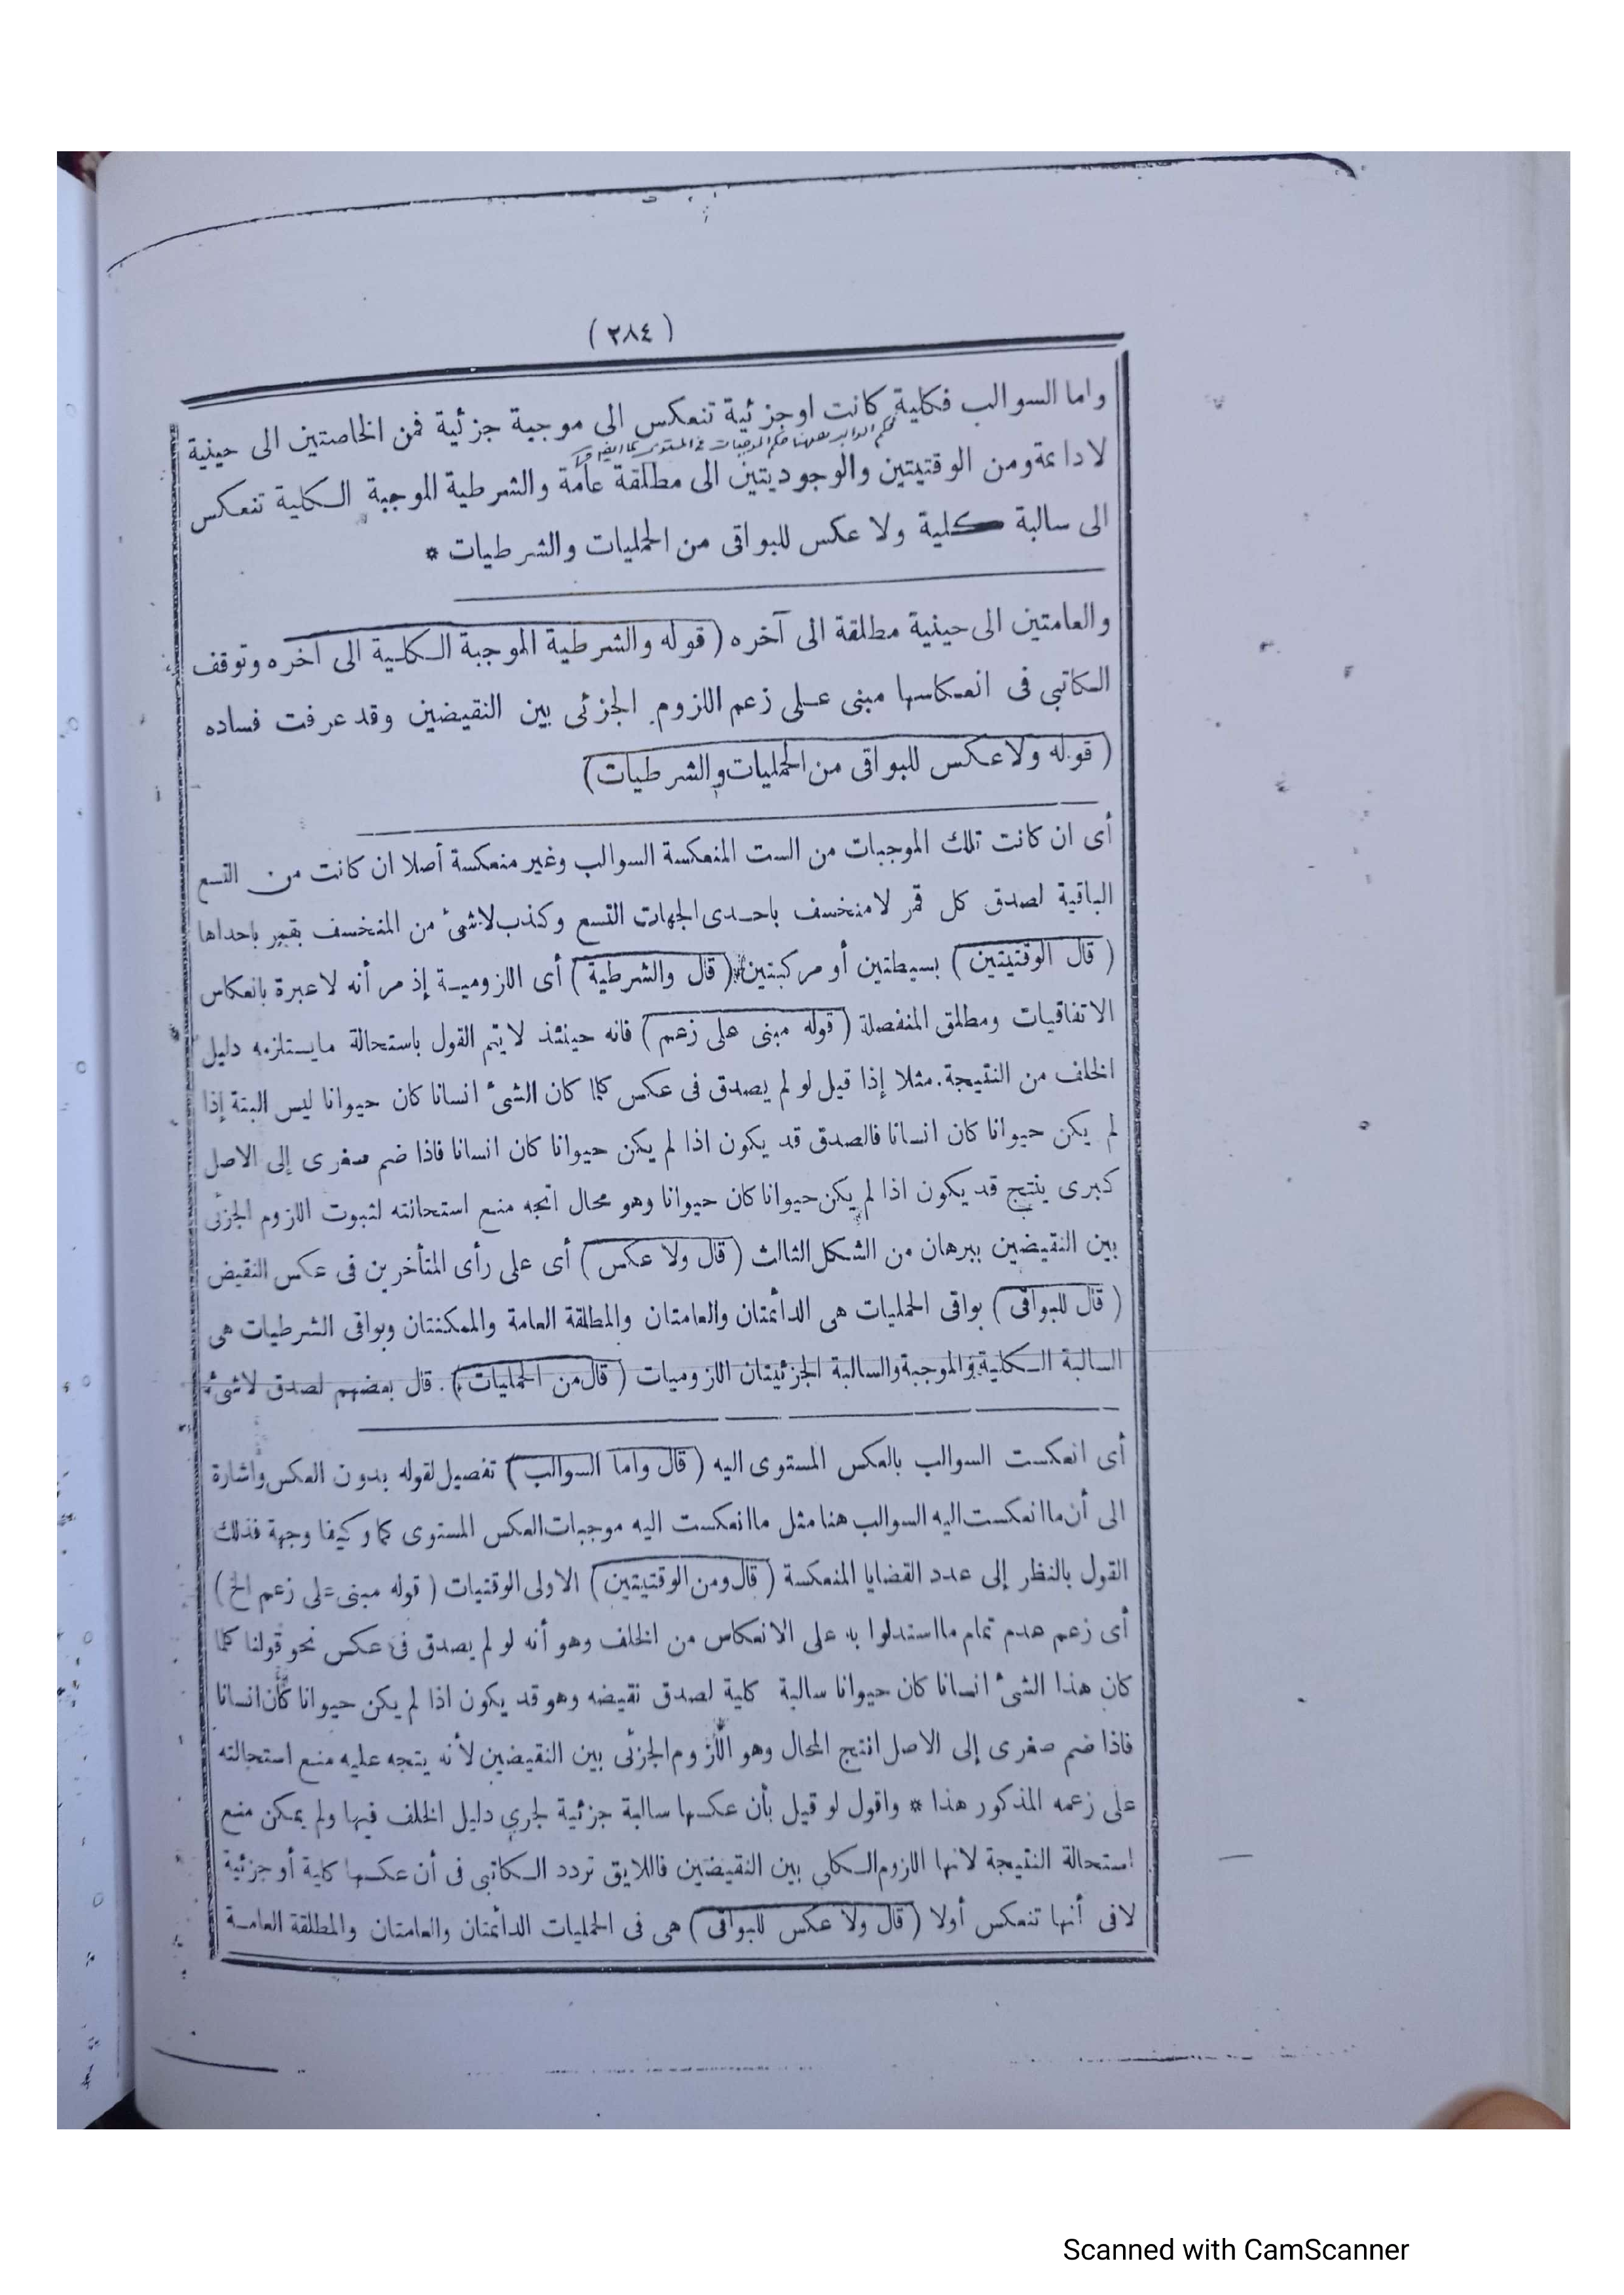 ( ٢٨٤ )
واما السوالب فكلية كانت اوجزئية تنعكس الى موجبة جزئية فمن الخاصتين الى حينية
لادائمة ومن الوقتيتين والوجوديتين الى مطلقة عامة والشرطية الموجبة الكلية تنعكس
الى سالبة كلية ولا عكس للبواقى من الحمليات والشرطيات *
والعامتين الى حينية مطلقة الى آخره ( قوله والشرطية الموجبة الكلية الى آخره وتوقف
الكاتبى فى انعكاسها مبنى على زعم اللزوم الجزئى بين النقيضين وقد عرفت فساده
( قوله ولا عكس للبواقى من الحمليات والشرطيات )
أى ان كانت تلك الموجبات من الست المنعكسة السوالب وغير منعكسة أصلا ان كانت من التسع
الباقية لصدق كل قمر لا منخسف باحدى الجهات التسع وكذب لاشئ من المنخسف بقمر باحداها
( قال الوقتيتين ) بسيطتين أو مركبتين ( قال والشرطية ) أى اللزومية إذ مر أنه لا عبرة بانعكاس
الاتفاقيات ومطلق المنفصلة ( قوله مبنى على زعم ) فانه حينئذ لا يتم القول باستحالة ما يستلزمه دليل
الخلف من النتيجة . مثلا إذا قيل لو لم يصدق فى عكس كلما كان الشئ انسانا كان حيوانا ليس البتة إذا
لم يكن حيوانا كان انسانا فالصدق قد يكون اذا لم يكن حيوانا كان انسانا فاذا ضم صغرى إلى الاصل
كبرى ينتج قد يكون اذا لم يكن حيوانا كان حيوانا وهو محال اتجه منع استحالته لثبوت اللزوم الجزئى
بين النقيضين ببرهان من الشكل الثالث ( قال ولا عكس ) أى على رأى المتأخرين فى عكس النقيض
( قال للبواقى ) بواقى الحمليات هى الدائمتان والعامتان والمطلقة العامة والممكنتان وبواقى الشرطيات هى
السالبة الكلية والموجبة والسالبة الجزئيتان اللزوميات ( قال من الحمليات ) . قال بعضهم لصدق لاشئ
أى انعكست السوالب بالعكس المستوى اليه ( قال واما السوالب ) تفصيل لقوله بدون العكس واشارة
الى أن ما انعكست اليه السوالب هنا مثل ما انعكست اليه موجبات العكس المستوى كما وكيفا وجهة فذلك
القول بالنظر إلى عدد القضايا المنعكسة ( قال ومن الوقتيتين ) الاولى الوقتيات ( قوله مبنى على زعم الخ )
أى زعم هدم تمام ما استدلوا به على الانعكاس من الخلف وهو أنه لو لم يصدق فى عكس نحو قولنا كلما
كان هذا الشئ انسانا كان حيوانا سالبة كلية لصدق نقيضه وهو قد يكون اذا لم يكن حيوانا كان انسانا
فاذا ضم صغرى إلى الاصل انتج المحال وهو اللزوم الجزئى بين النقيضين لأنه يتجه عليه منع استحالته
على زعمه المذكور هذا * واقول لو قيل بأن عكسها سالبة جزئية لجرى دليل الخلف فيها ولم يمكن منع
استحالة النتيجة لانها اللزوم الكلى بين النقيضين فاللايق تردد الكاتبى فى أن عكسها كلية أو جزئية
لافى أنها تنعكس أولا ( قال ولا عكس للبواقى ) هى فى الحمليات الدائمتان والعامتان والمطلقة العامة
Scanned with CamScanner